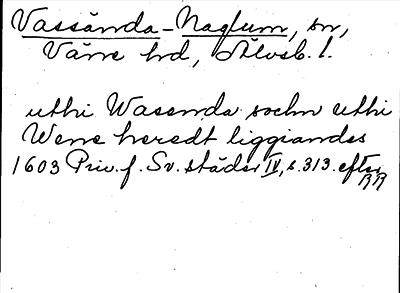 Vassända-Naglum, sn,
Väne hd, Älvsb. l.
uthi Wasenda sochn uthi
Wene heredt liggiandes
1603 Priv. f. Sv. städer IV, s. 313. efter
RR